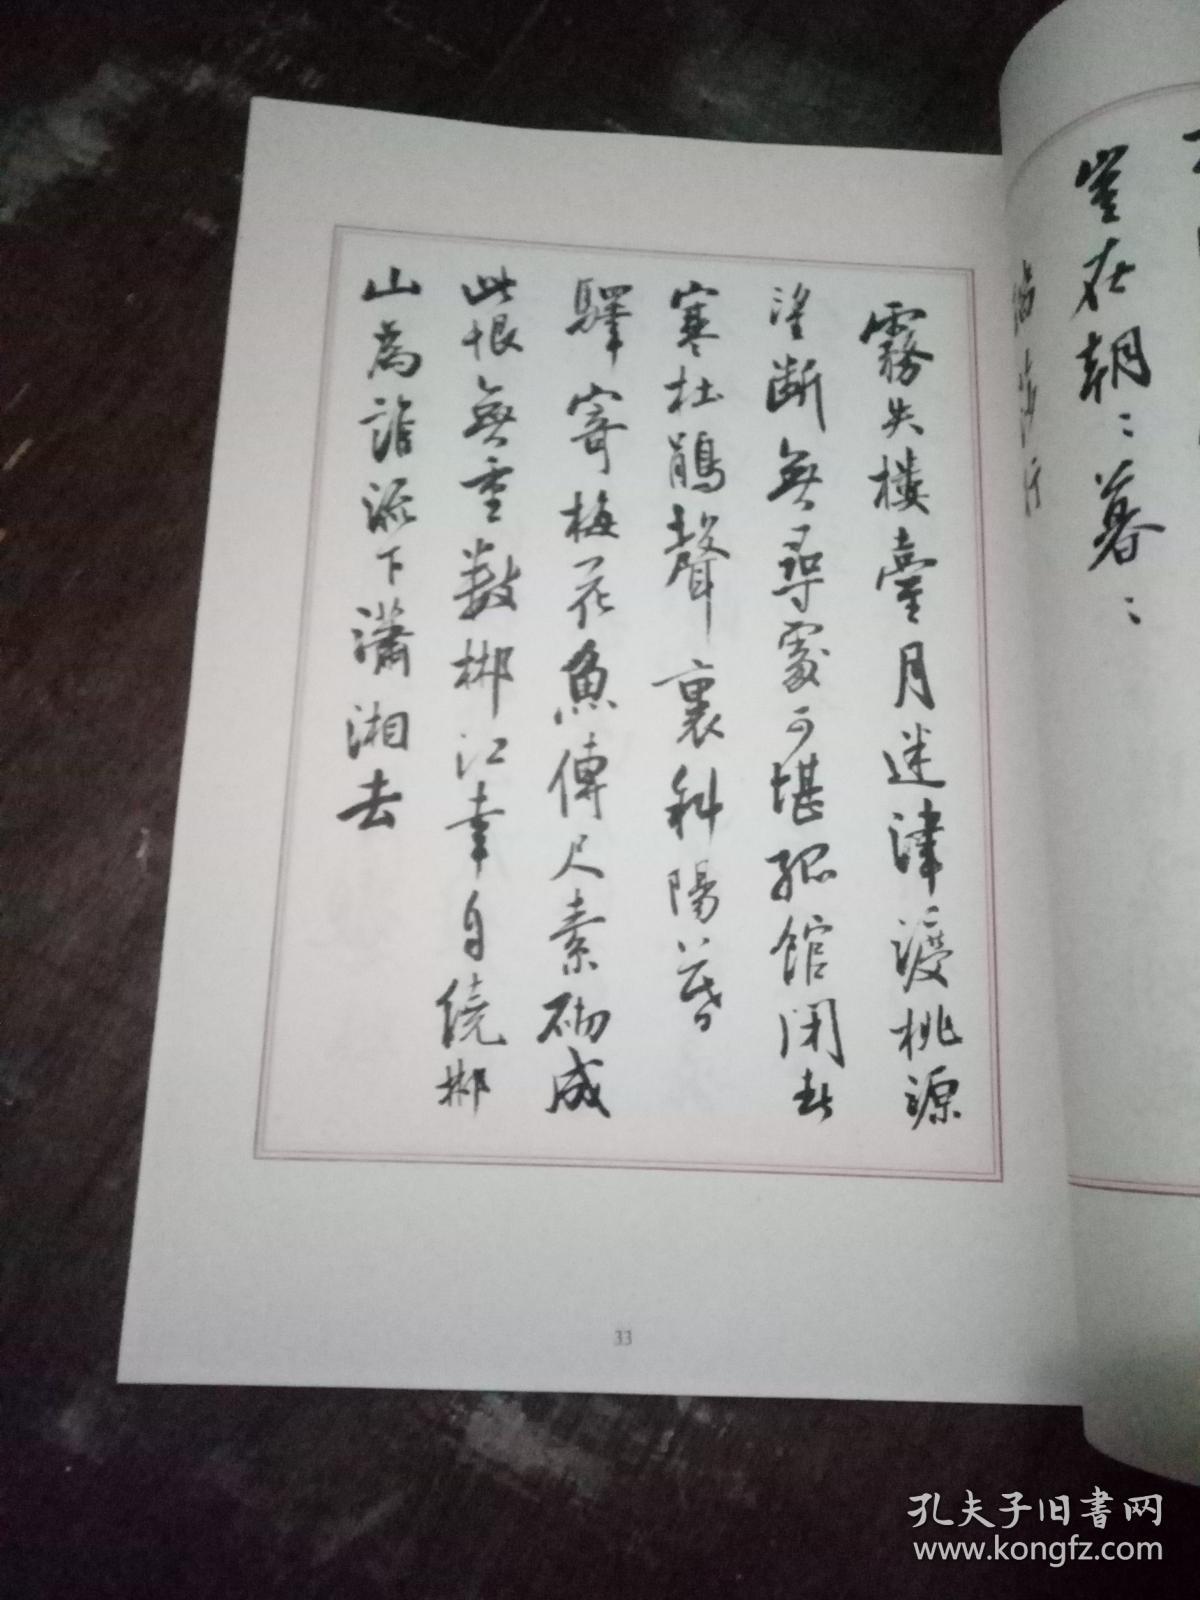 豈在朝：暮：
霧失楼臺月迷津渡桃源
望断無尋處可堪孤館閉春
寒杜鵑聲裏斜陽暮
驛寄梅花魚傳尺素砌成
此恨無重數郴江幸自繞郴
山為誰流下瀟湘去
33
孔夫子旧書网
www.kongfz.com